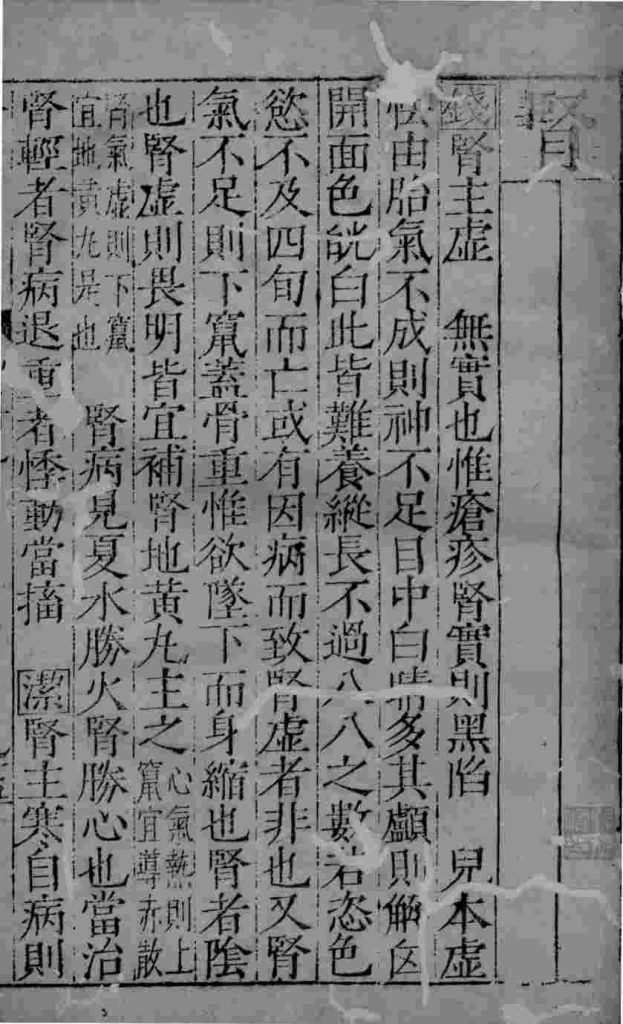 腎
錢腎主虛 無實也惟瘡疹腎實則黑陷 兒本虛
怯由胎氣不成則神不足目中白睛多其顱則解囟
開面色㿠白此皆難養縱長不過八八之數若恣色
慾不及四旬而亡或有因病而致腎虛者非也又腎
氣不足則下竄蓋骨重惟欲墜下而身縮也腎者陰
也腎虛則畏明皆宜補腎地黃丸主之心氣熱則上
竄宜導赤散
腎氣虛則下竄
宜地黃丸是也 腎病見夏水勝火腎勝心也當治
腎輕者腎病退重者悸動當搐 潔腎主寒自病則